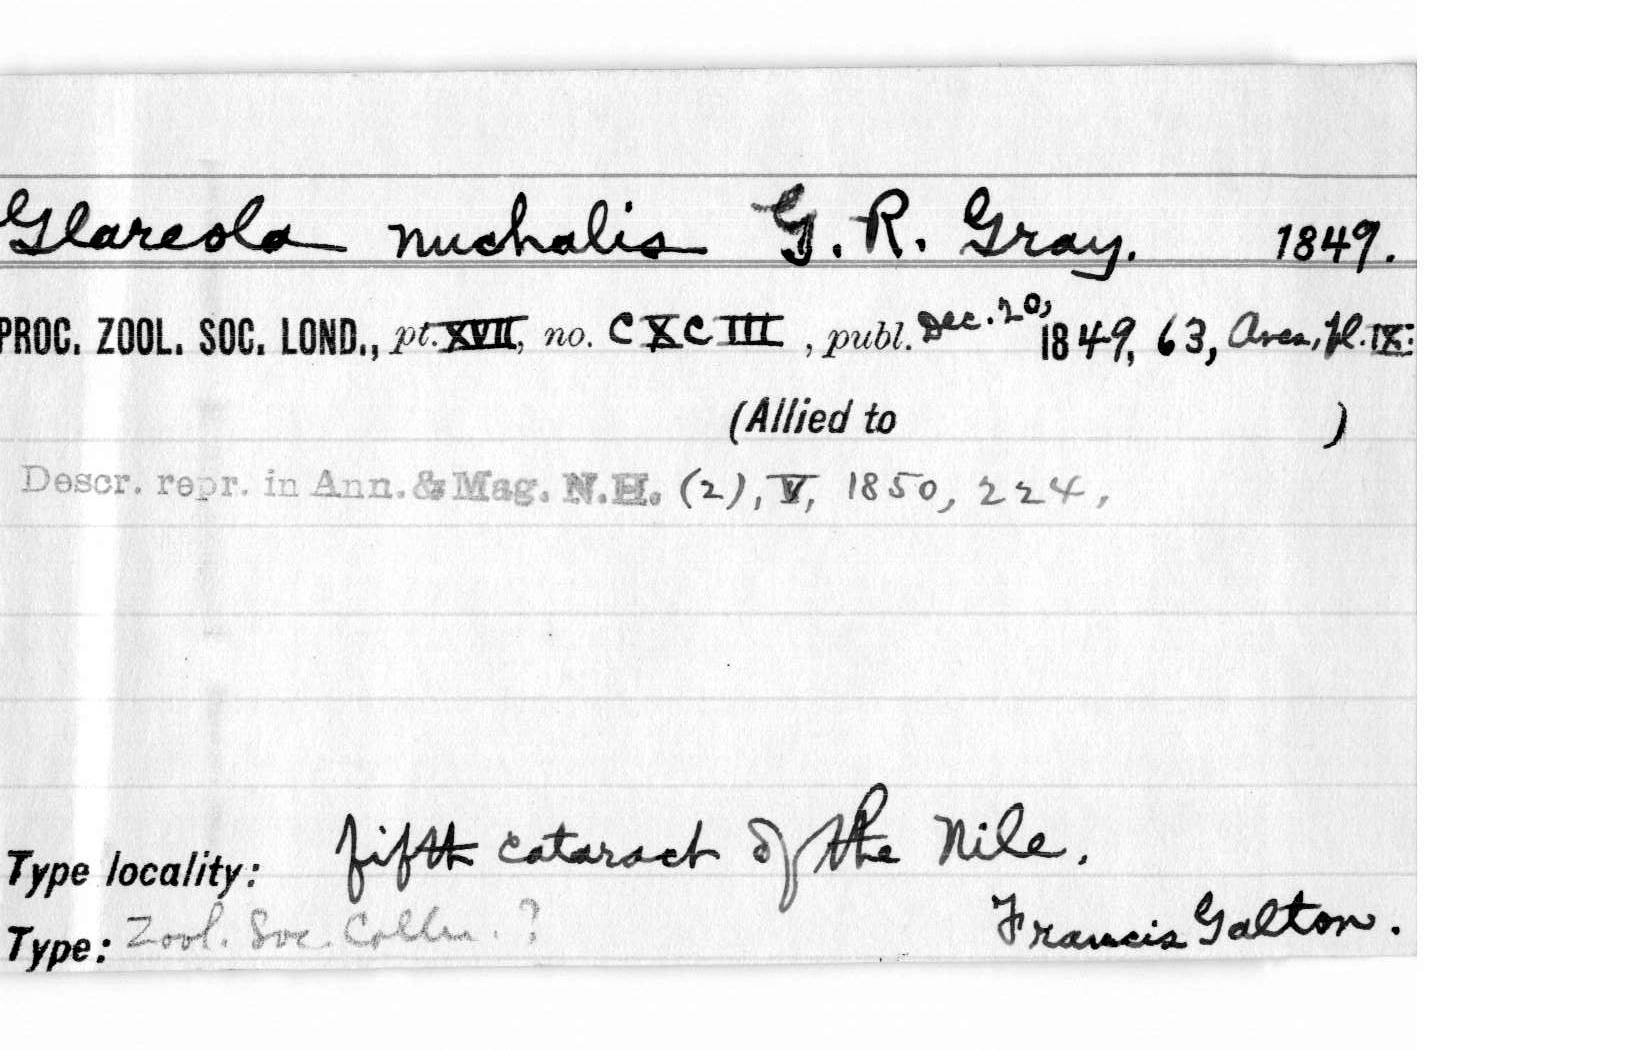 Glareola nuchalis G. R. Gray. 1849.
PROC. ZOOL. SOC. LOND., pt. XVII, no. CXCIII, publ. Dec. 20, 1849, 63, Aves, pl. IX:
(Allied to )
Descr. repr. in Ann. & Mag. N.H. (2), V, 1850, 224,
Type locality: fifth cataract of the Nile.
Francis Galton.
Type: Zool. Soc. Colln. ?